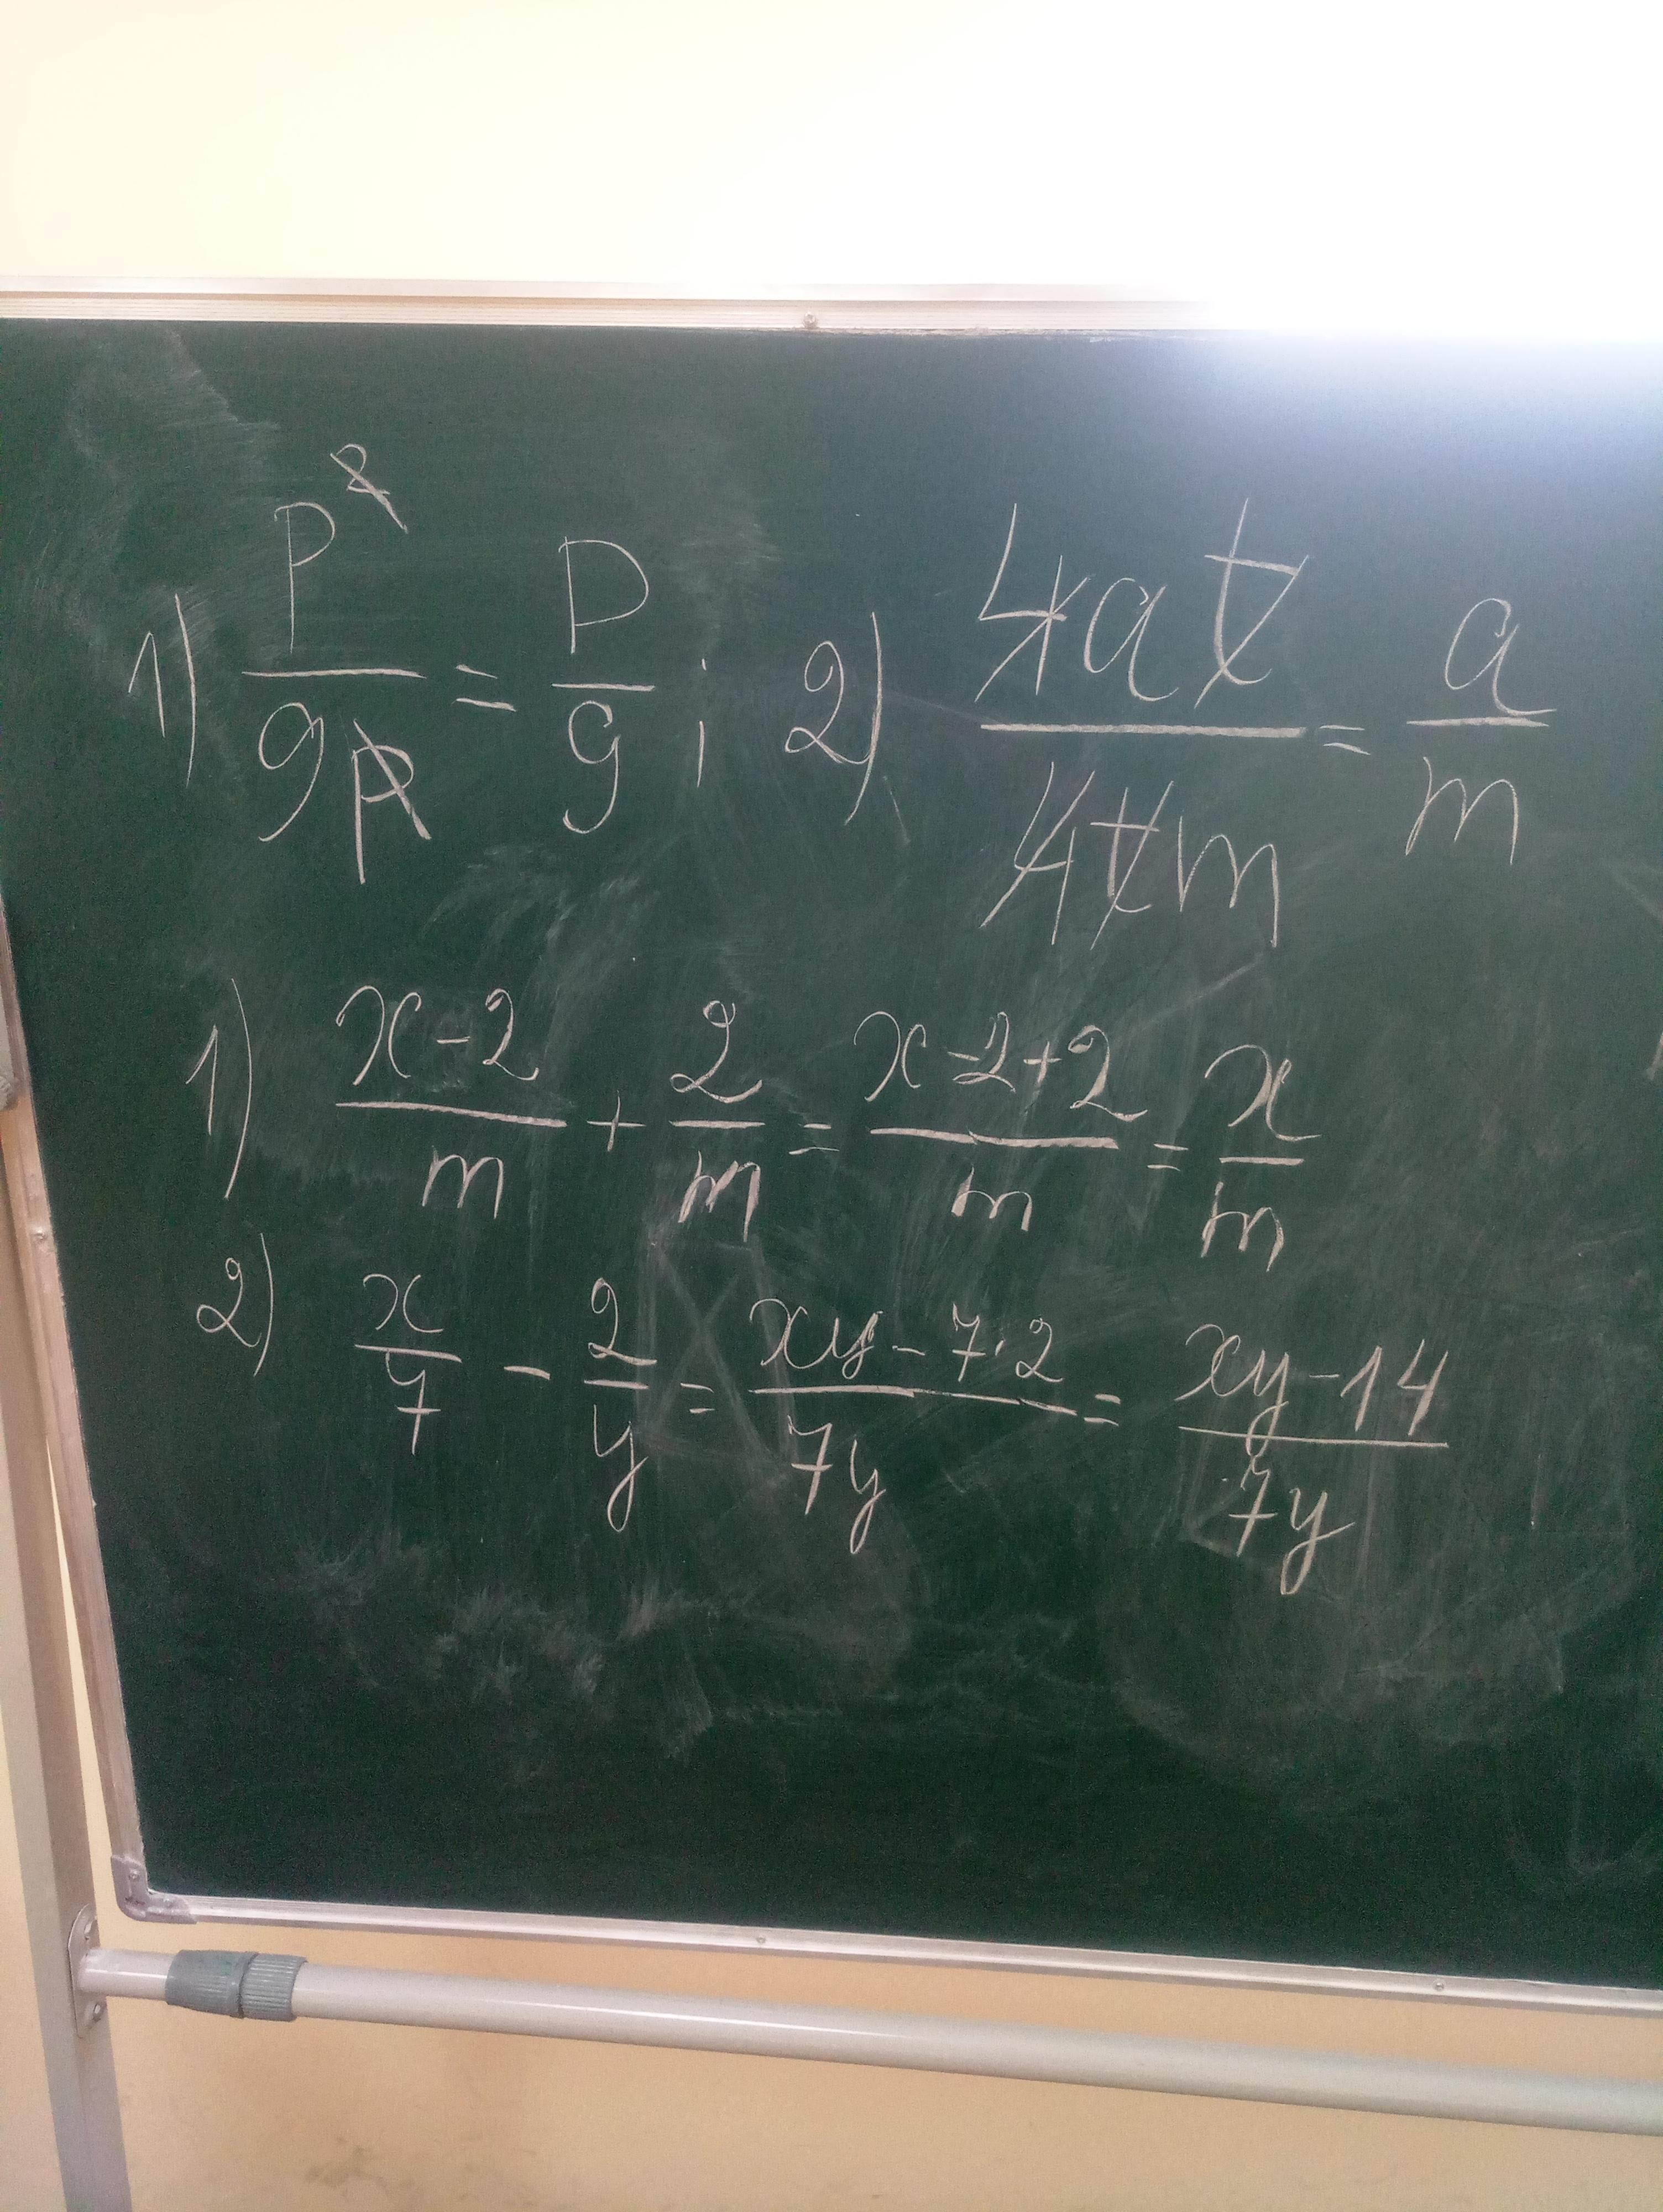 1) p²/9p = p/9 ; 2) 4at/4tm = a/m
1) x-2/m + 2/m = x-2+2/m = x/m
2) x/7 - 2/y = xy-7·2/7y = xy-14/7y